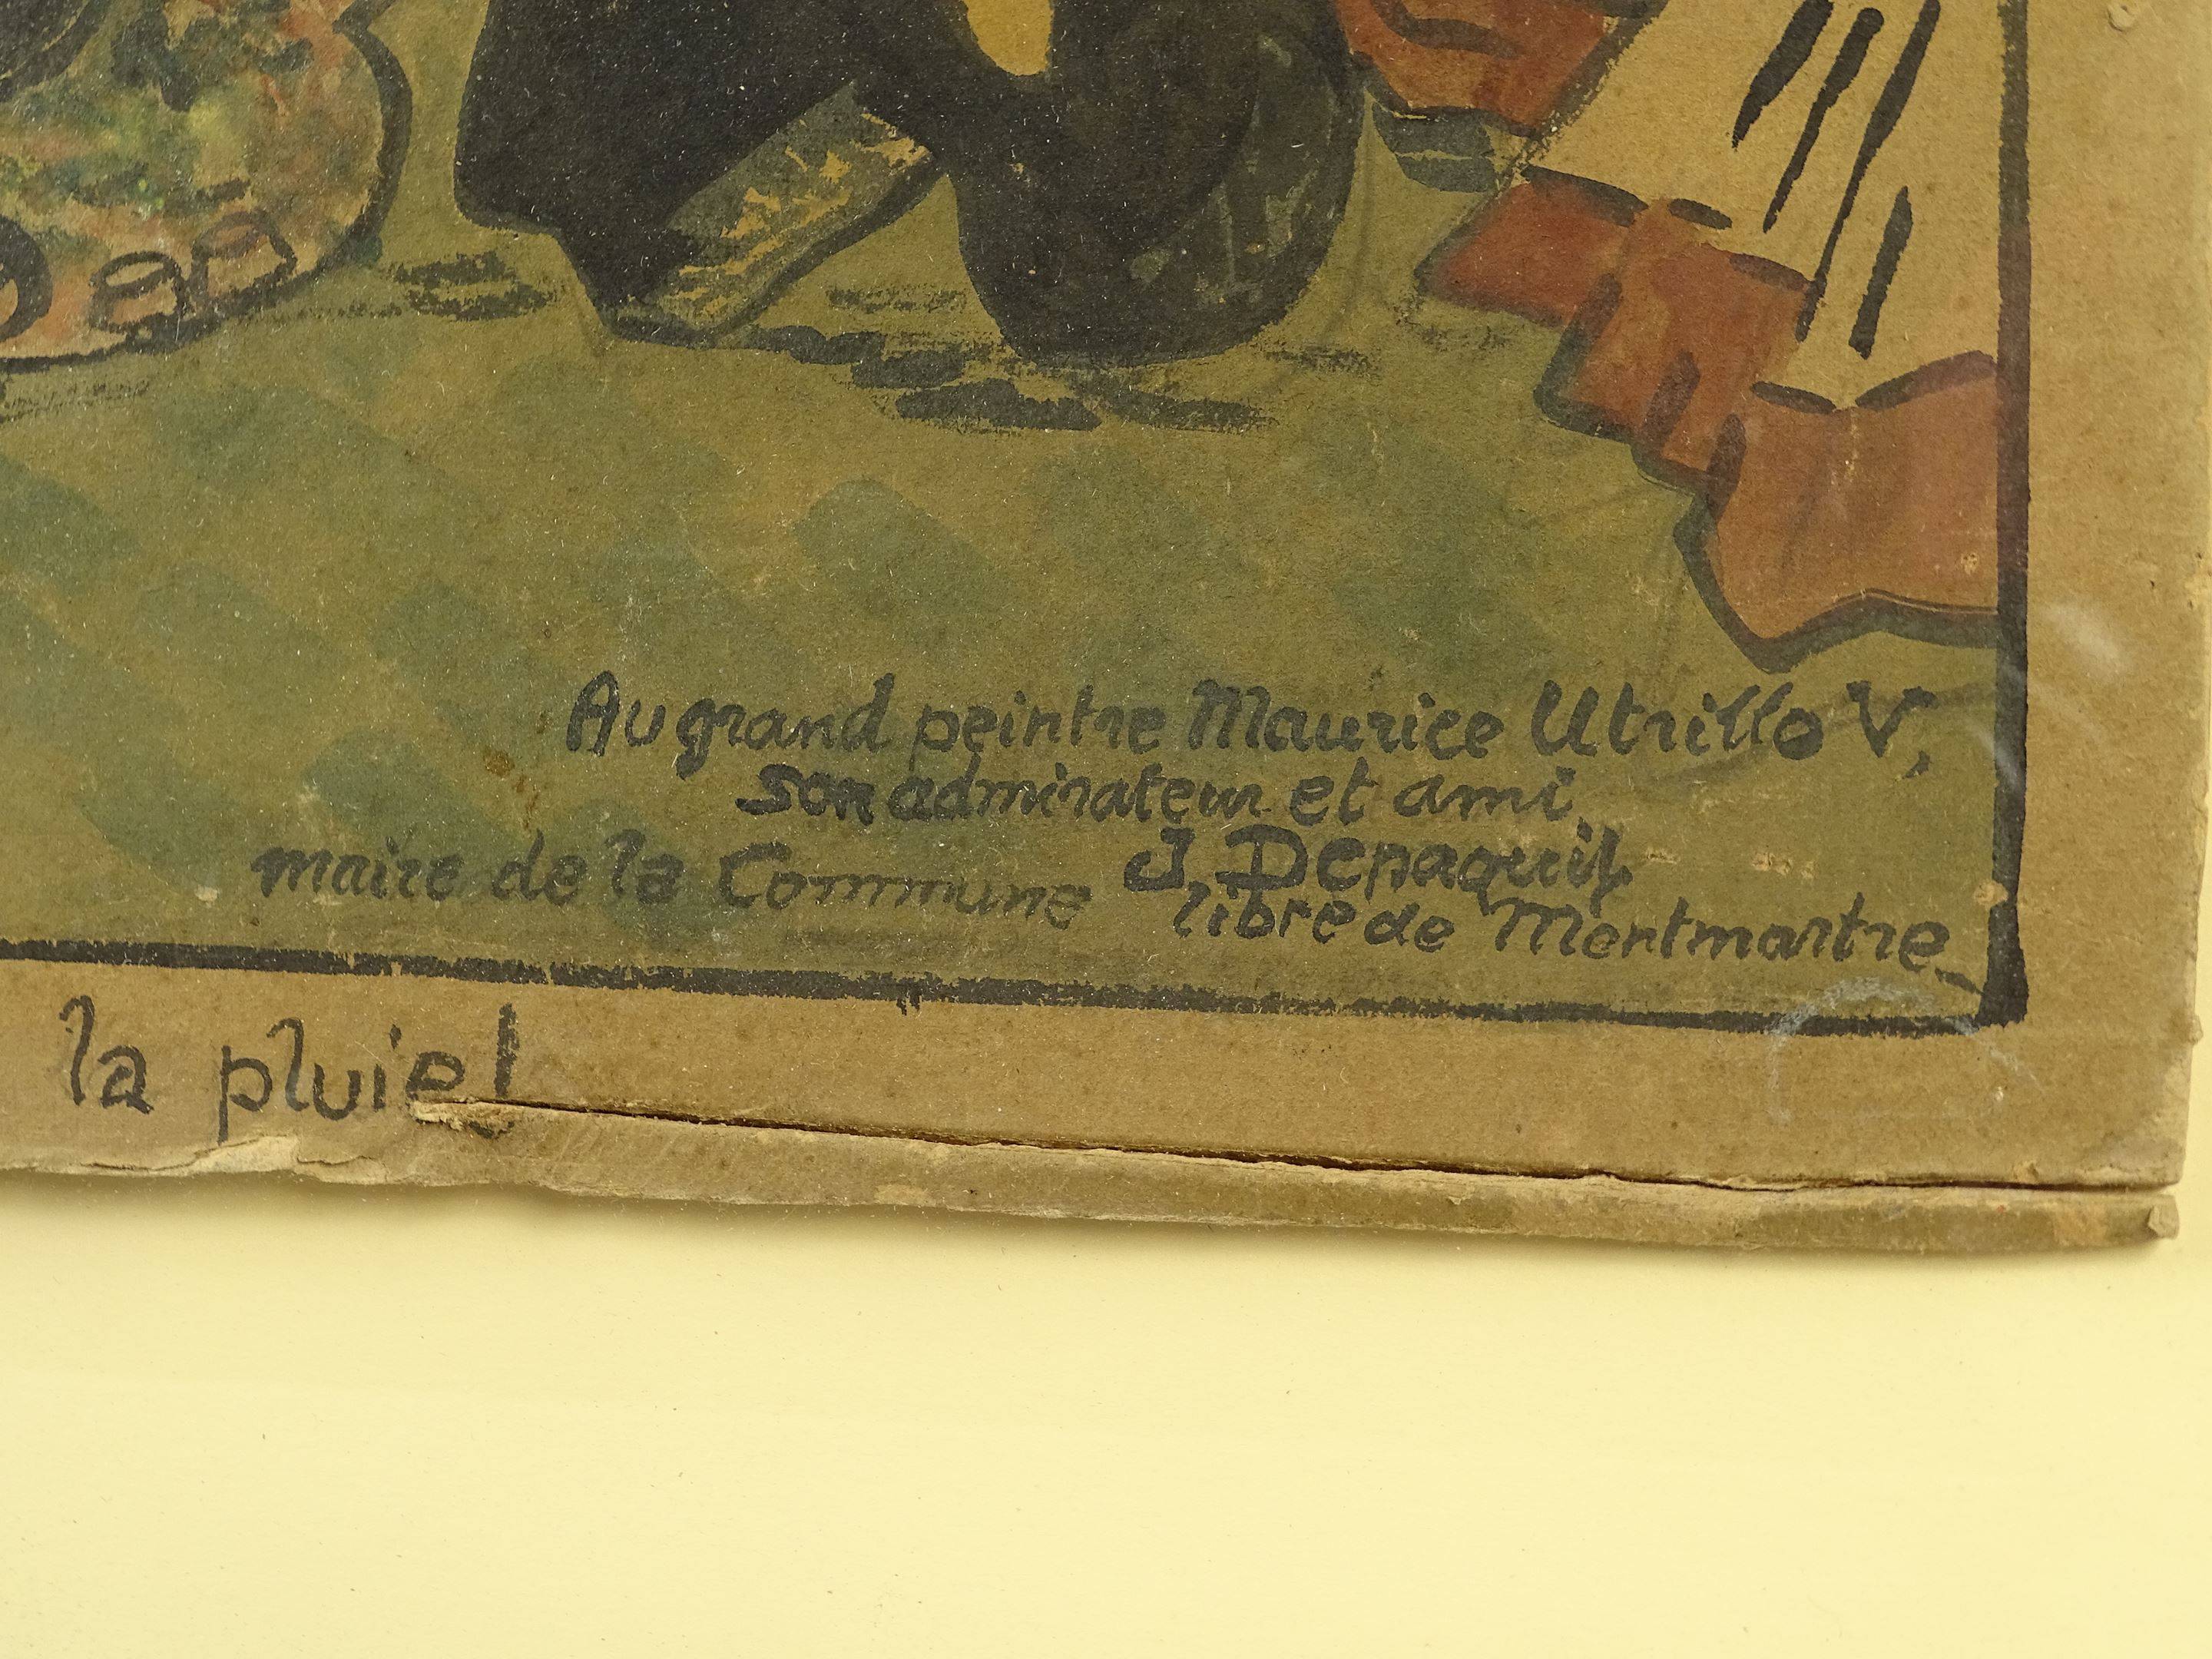 Au grand peintre Maurice Utrillo V,
son admirateur et ami,
J. Depaquit
maire de la Commune libre de Montmartre_
la pluie!